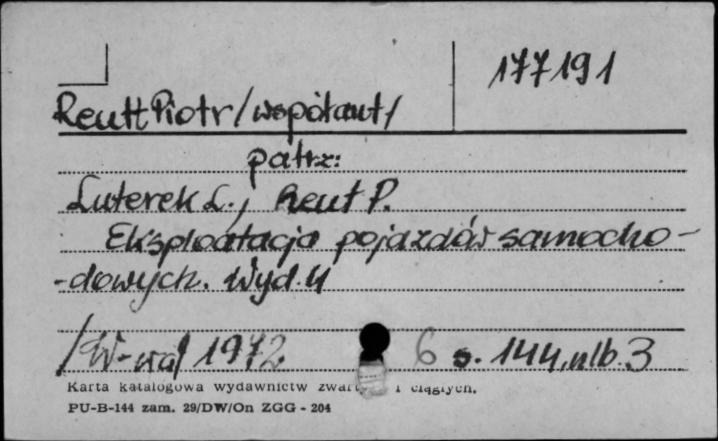 177191
Reutt Piotr /współaut/
patrz:
Luterek L., Reut P.
Eksploatacja pojazdów samocho-
-dowych. Wyd. 4
/W-wa/ 1972 6 s. 144, nlb. 3
Karta katalogowa wydawnictw i ciągłych.
PU-B-144 zam. 29/DW/On ZGG - 204